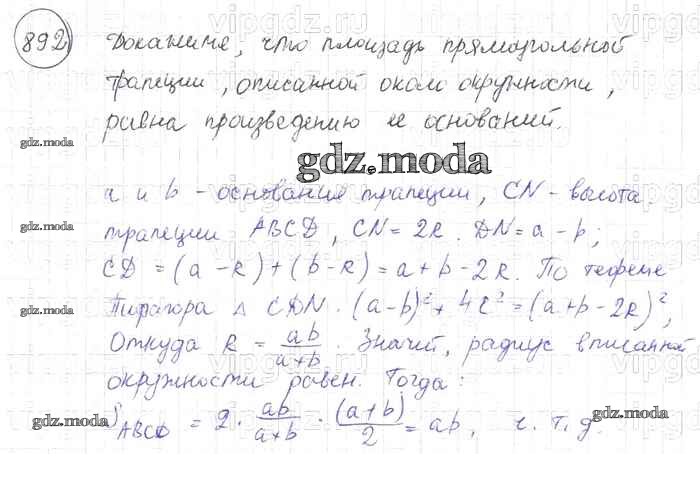 892
Докажите, что площадь прямоугольной
трапеции, описанной около окружности,
равна произведению ее оснований.
gdz.moda
gdz.moda
a и b - основания трапеции, CN - высота
трапеции ABCD, CN = 2R. DN = a - b;
gdz.moda
gdz.moda
CD = (a - R) + (b - R) = a + b - 2R. По теореме
Пифагора △ CDN. (a-b)² + 4R² = (a+b-2R)²,
Откуда R = ab/a+b. Значит, радиус вписанной
окружности равен. Тогда:
S ABCD = 2 · ab/a+b · (a+b)/2 = ab, ч.т.д.
gdz.moda
gdz.moda
gdz.moda